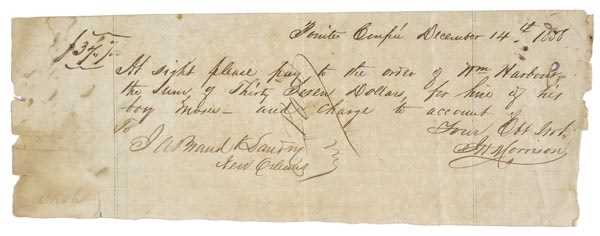 Pointe Coupée December 14th 1856
$37 00/100
At sight please pay to the order of Wm Harbour
the Sum, of Thirty Seven Dollars, for hire of his
boy Moses - and charge to account
Your Obt Srvt,
To
J A Braud & Landry
New Orleans
Morrison